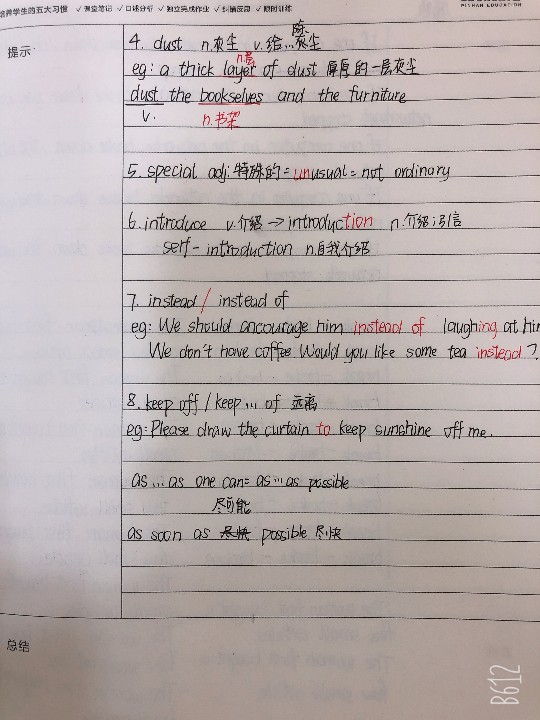 培养学生的五大习惯 ✓课堂笔记 ✓口述分析 ✓独立完成作业 ✓纠错反思 ✓限时训练
PINHAN EDUCATION
提示
4. dust n.灰尘 v.给…除灰尘
n.层
eg: a thick layer of dust 厚厚的一层灰尘
dust the bookselves and the furniture
v. n.书架
5. special adj.特殊的=unusual=not ordinary
6. introduce v.介绍→introduction n.介绍;引言
self-introduction n.自我介绍
7. instead / instead of
eg: We should encourage him instead of laughing at him
We don't have coffee. Would you like some tea instead?
8. keep off / keep … of 远离
eg: Please draw the curtain to keep sunshine off me.
as … as one can = as … as possible
尽可能
as soon as possible 尽快
总结
B612